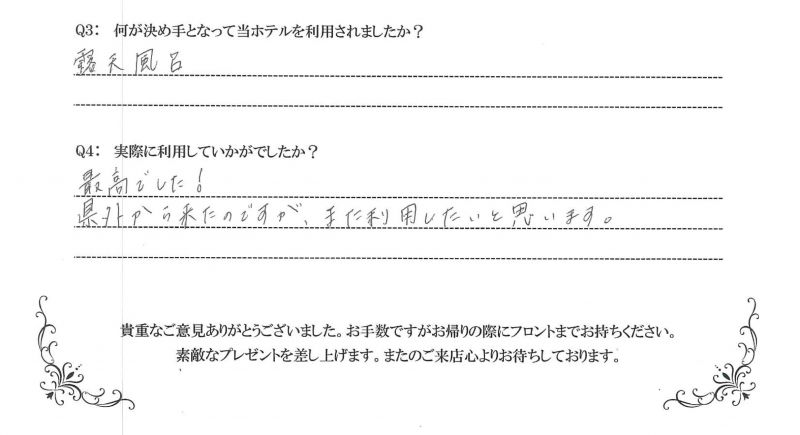 Q3: 何が決め手となって当ホテルを利用されましたか？
露天風呂
Q4: 実際に利用していかがでしたか？
最高でした！
県外から来たのですが、また利用したいと思います。
貴重なご意見ありがとうございました。お手数ですがお帰りの際にフロントまでお持ちください。
素敵なプレゼントを差し上げます。またのご来店心よりお待ちしております。